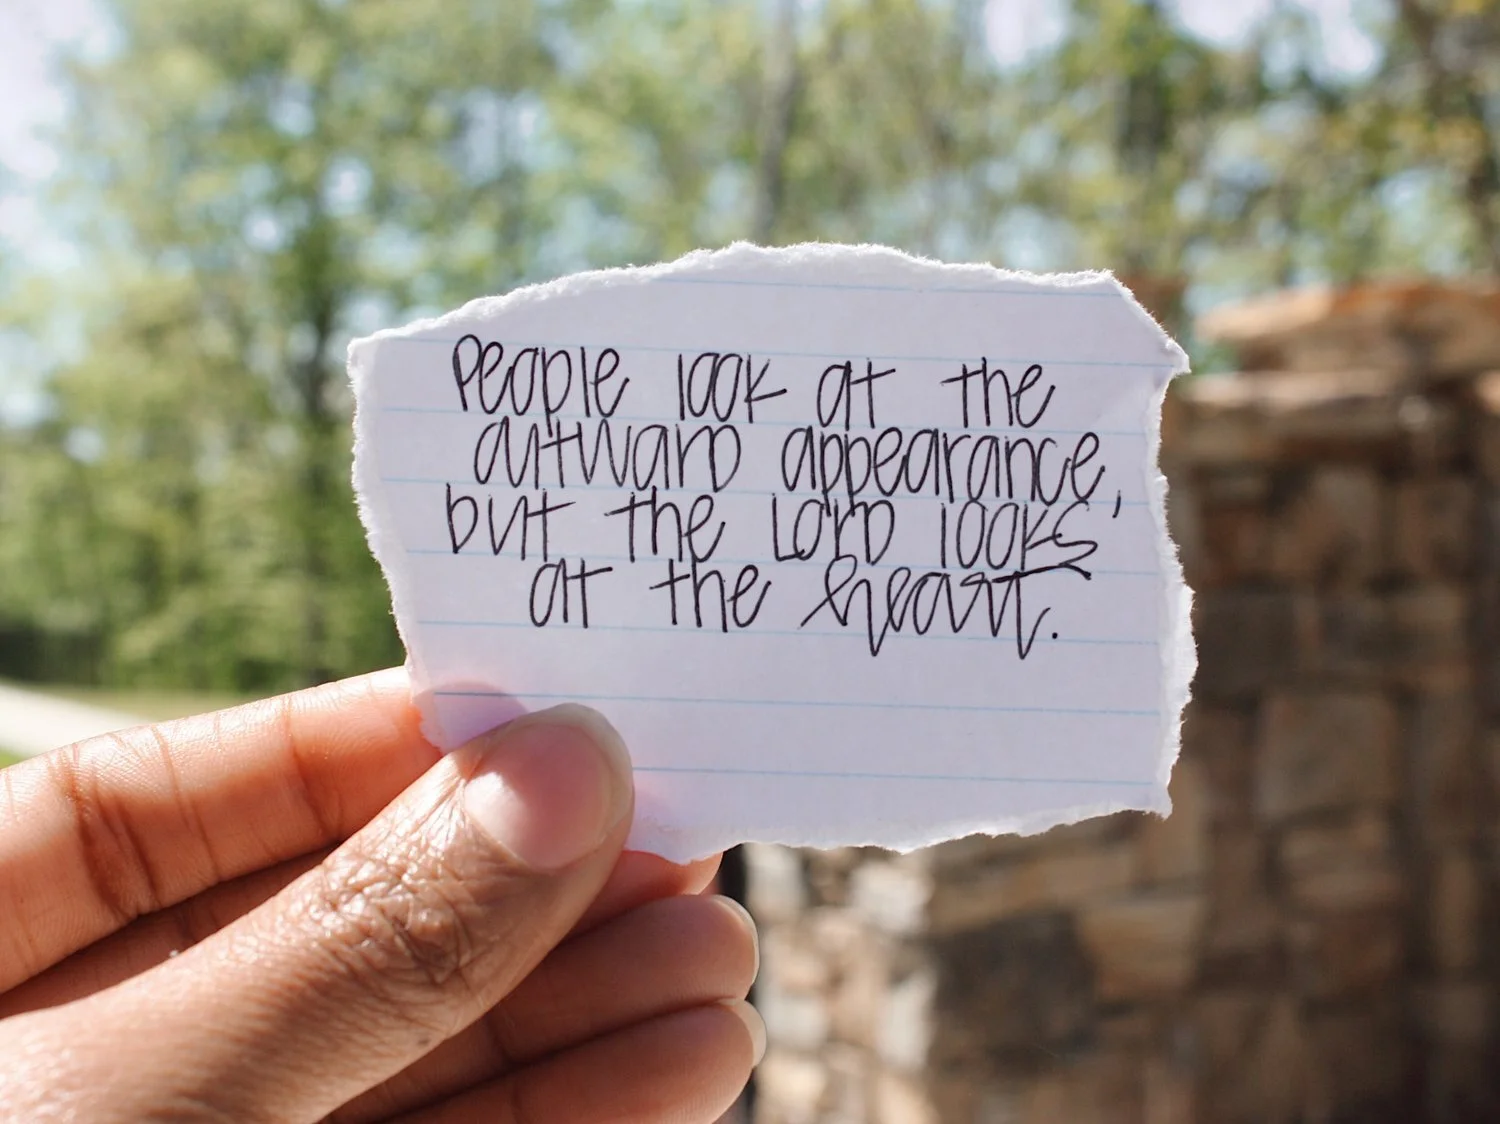 People look at the
outward appearance,
but the Lord looks
at the heart.